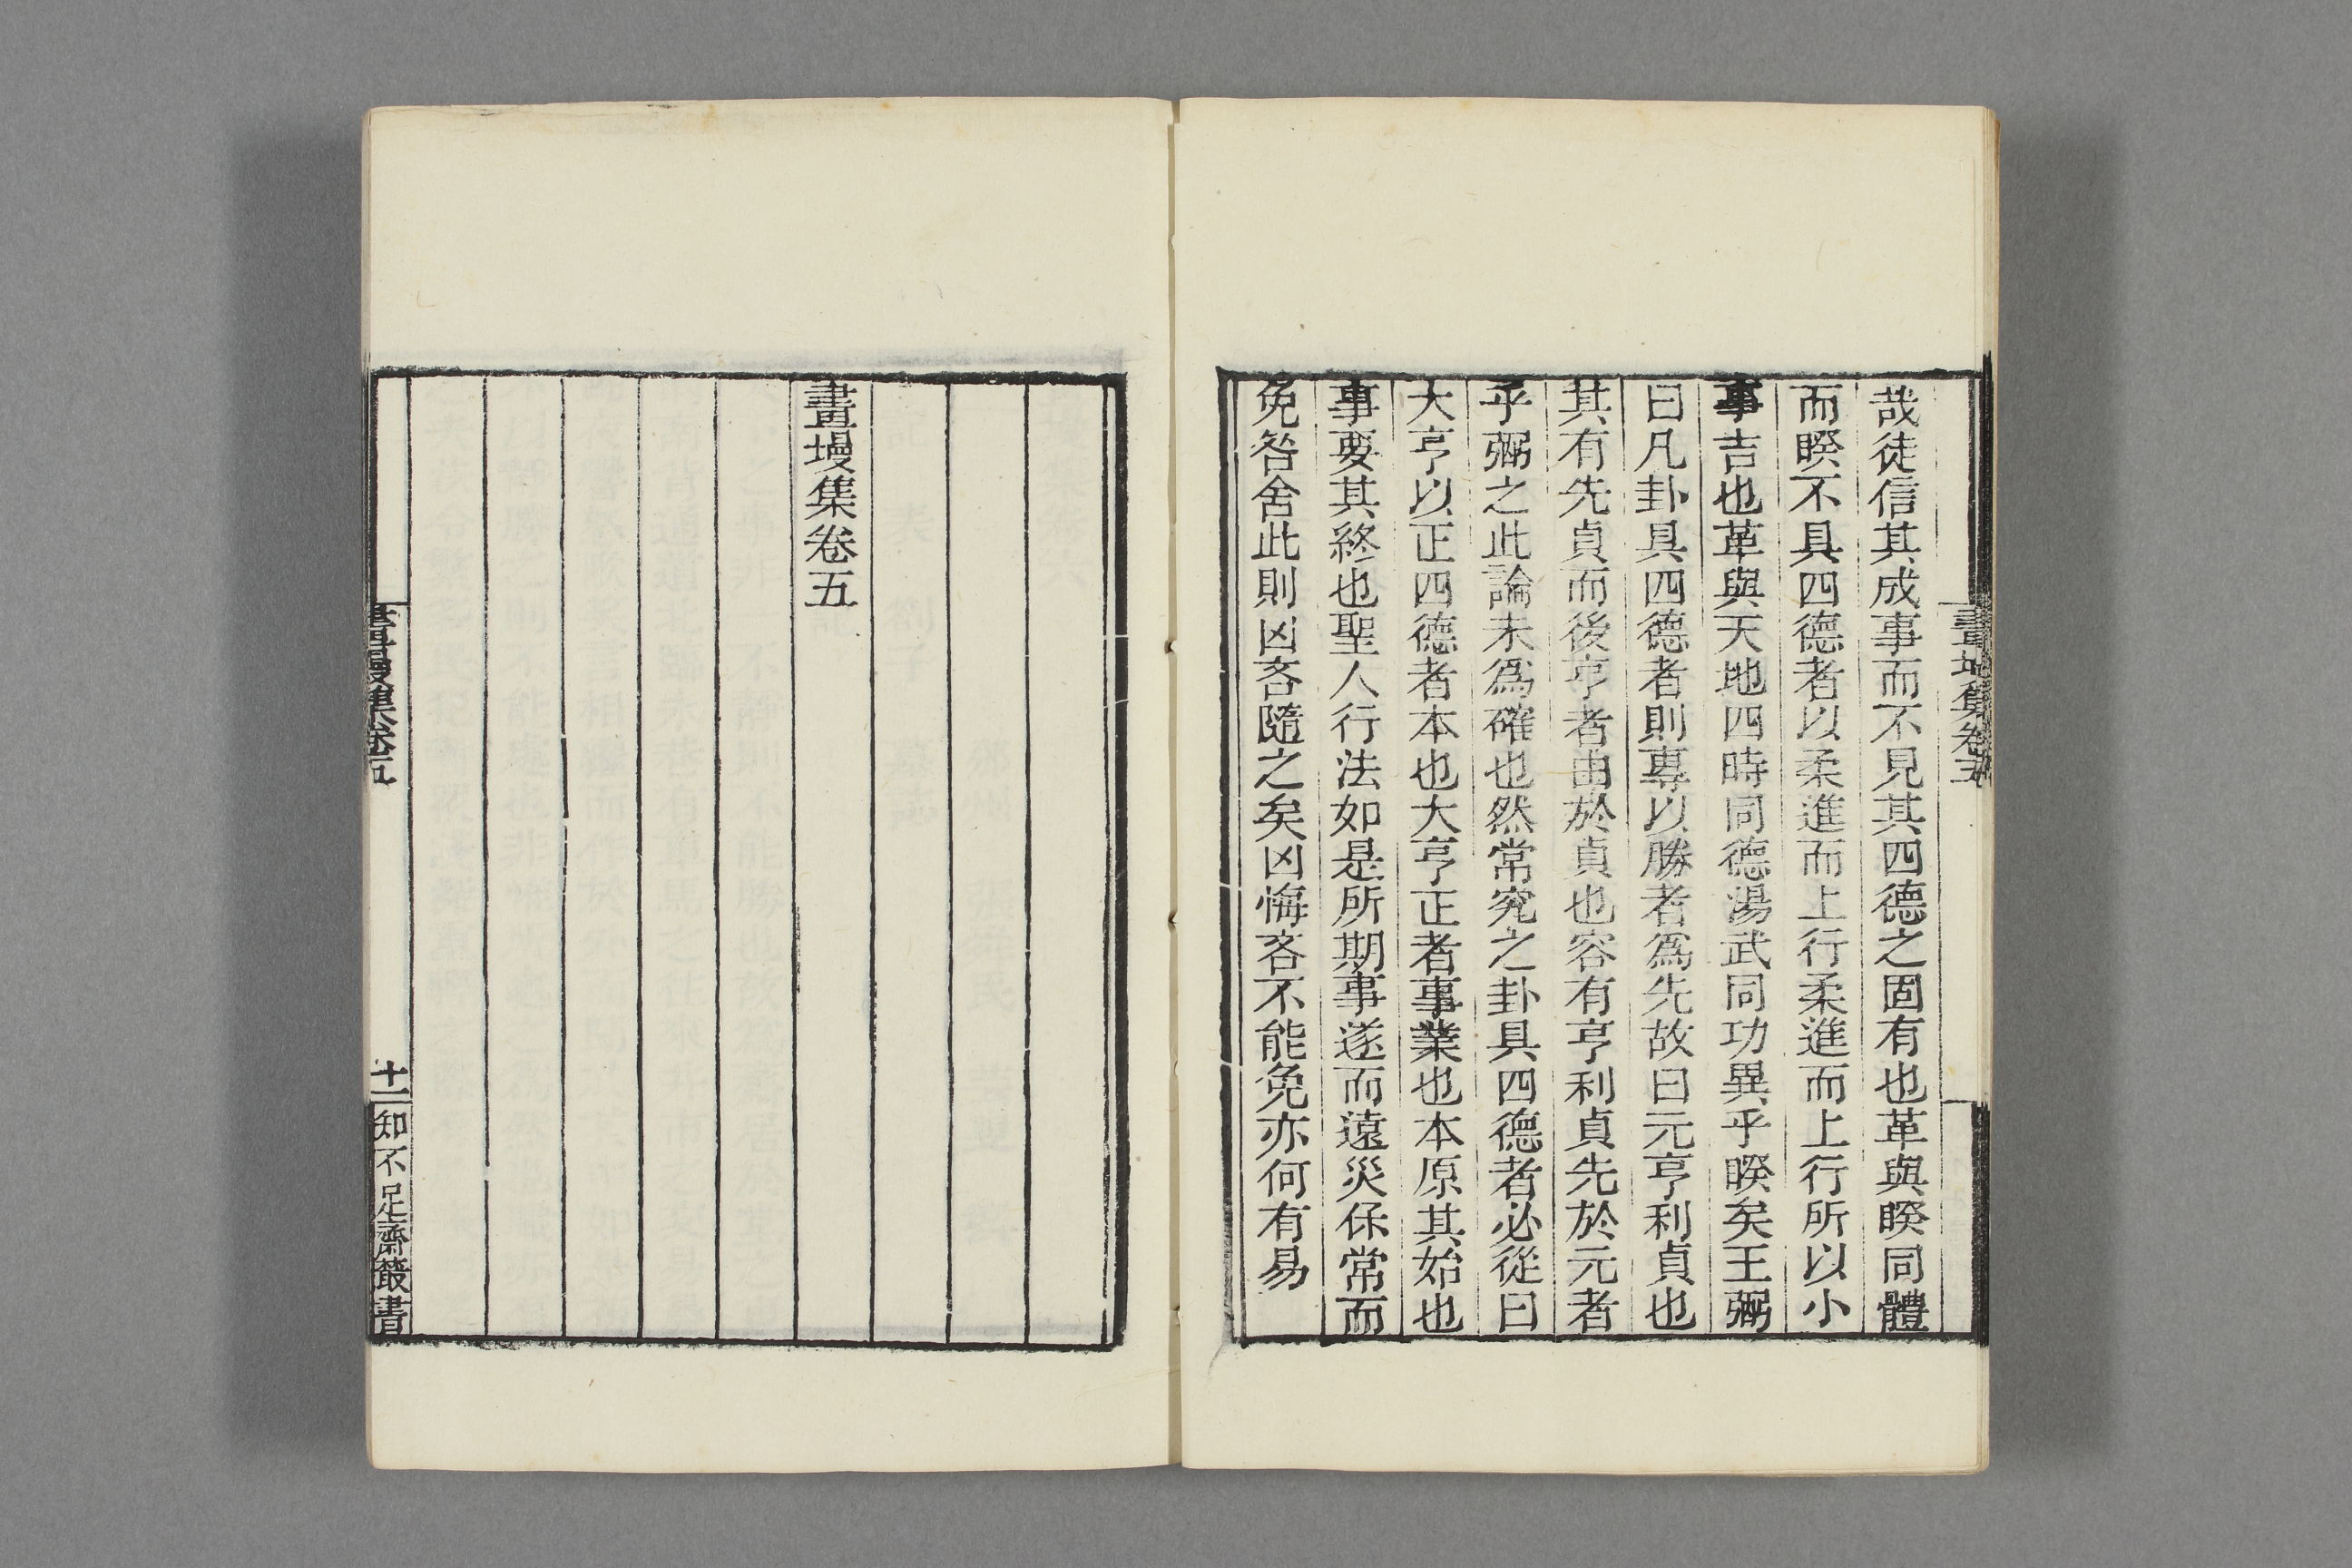 哉徒信其成事而不見其四德之固有也革與睽同體
而睽不具四德者以柔進而上行柔進而上行所以小
事吉也革與天地四時同德湯武同功異乎睽矣王弼
曰凡卦具四德者則專以勝者爲先故曰元亨利貞也
其有先貞而後亨者由於貞也容有亨利貞先於元者
乎弼之此論未爲確也然常究之卦具四德者必從曰
大亨以正四德者本也大亨正者事業也本原其始也
事要其終也聖人行法如是所期事遂而遠災保常而
免咎舍此則凶吝隨之矣凶悔吝不能免亦何有易
畫墁集卷五
畫墁集卷五
十二
知不足齋叢書